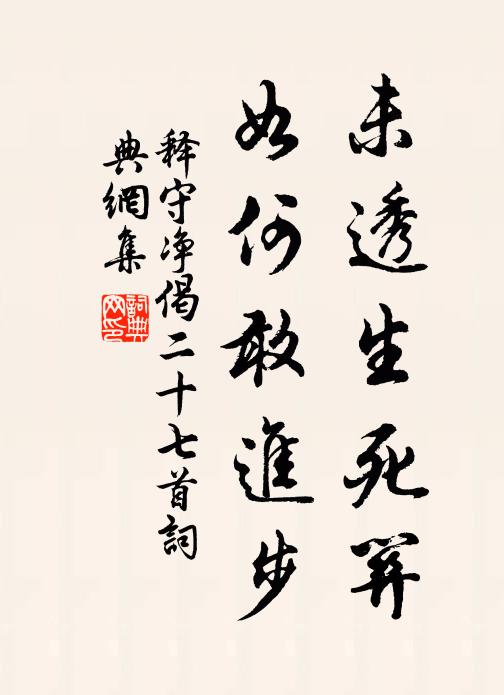 未透生死關
如何敢進步
释守净偈二十七首詞
典網集
詞典網印